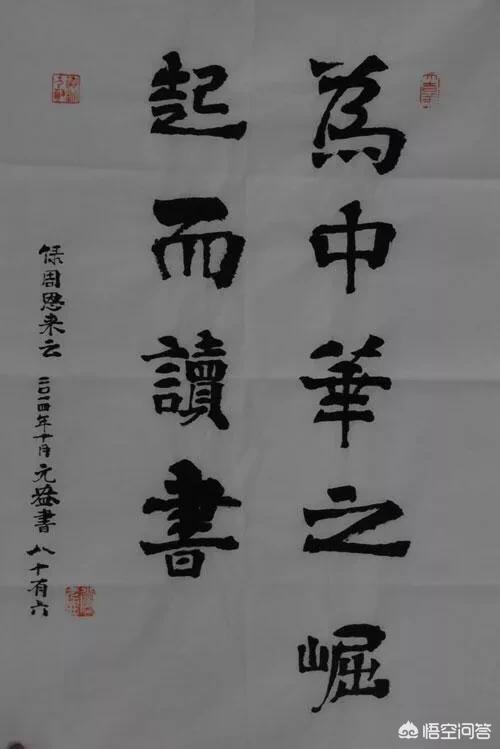 為中華之崛
起而讀書
保周恩来云 二〇一四年十月 元益書 八十有六
悟空问答